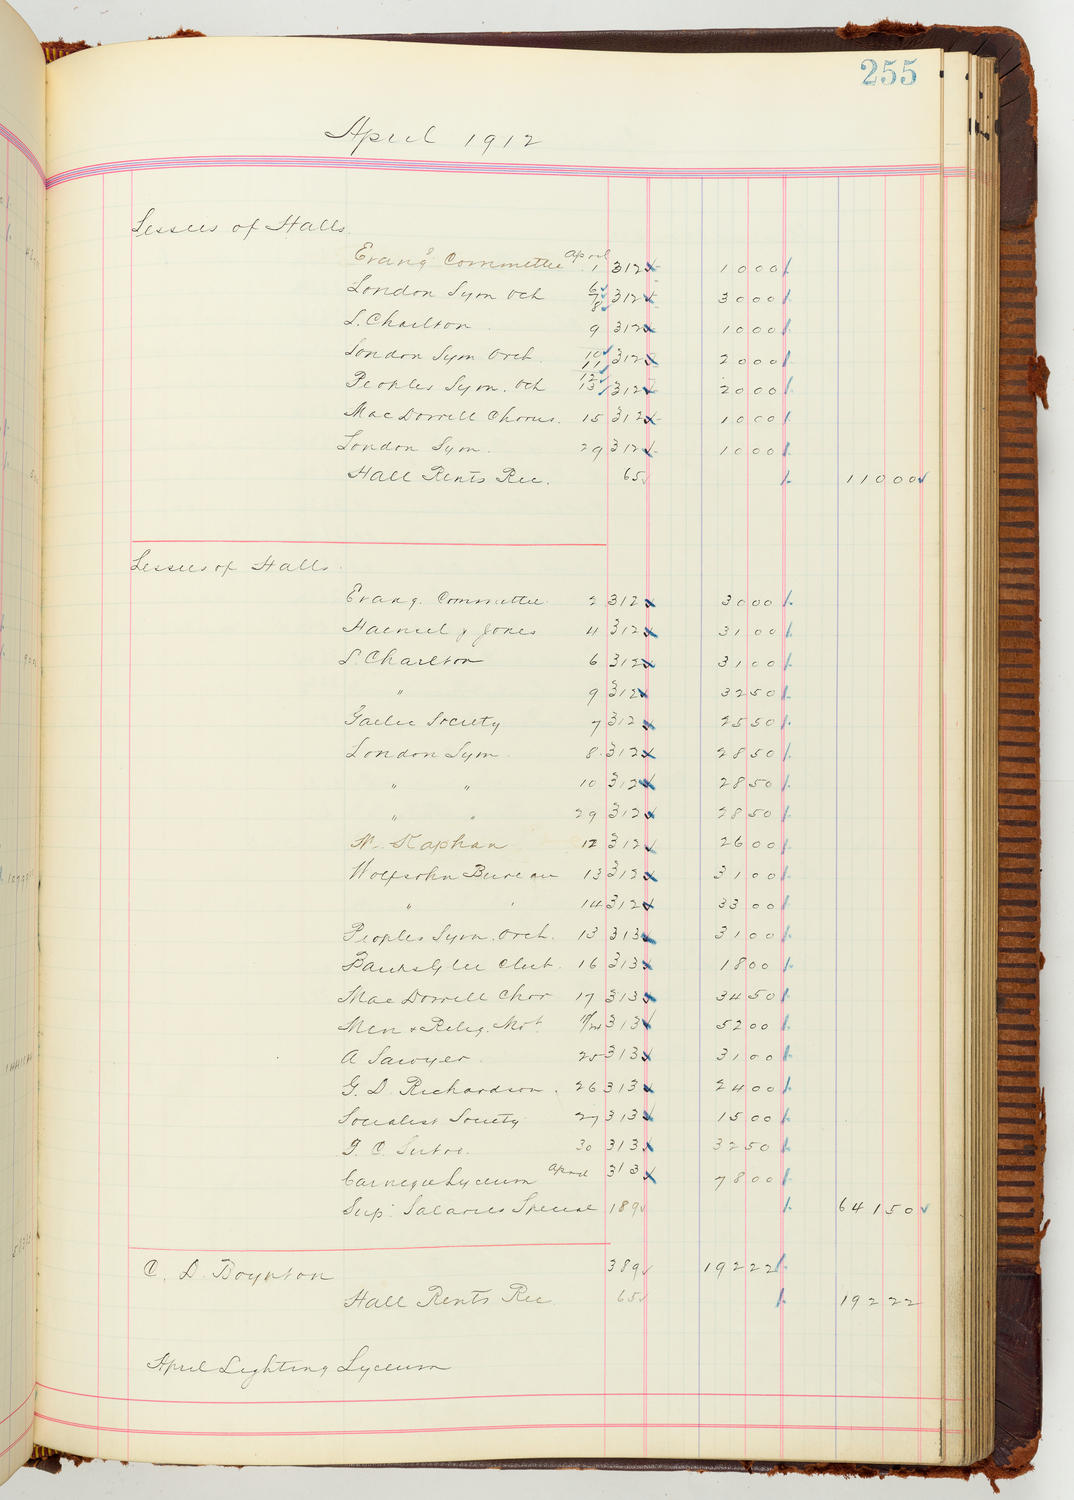 255
April 1912
Lessees of Halls.
Evang. Committee April 1 312 1000
London Sym Och 6 7 8 312 3000
L. Charlton 9 312 1000
London Sym Orch. 10 11 312 2000
Peoples Sym. Och 12 13 312 2000
Mac Dowell Chorus. 15 312 1000
London Sym. 29 312 1000
Hall Rents Rec. 65 11000
Lessees of Halls.
Evang. Committee 2 312 3000
Haensel & Jones 4 312 3100
L. Charlton 6 312 3100
" 9 312 3250
Gaelic Society 7 312 2550
London Sym. 8 312 2850
" " 10 312 2850
" " 29 312 2850
12 312 2600
Wolfsohn Bureau 13 312 3100
" " 14 312 3300
Peoples Sym. Orch. 13 313 3100
Glee Club. 16 313 1800
Mac Dowell Chor 17 313 3450
Men & Relig. Mot. 313 5200
A Sawyer. 25 313 3100
G. D. Richardson. 26 313 2400
Socialist Society 27 313 1500
30 313 3250
Carnegie Lyceum April 313 7800
Sup. Salaries Special 189 64150
C. D. Boynton 389 19222
Hall Rents Rec 65 19222
April Lighting Lyceum